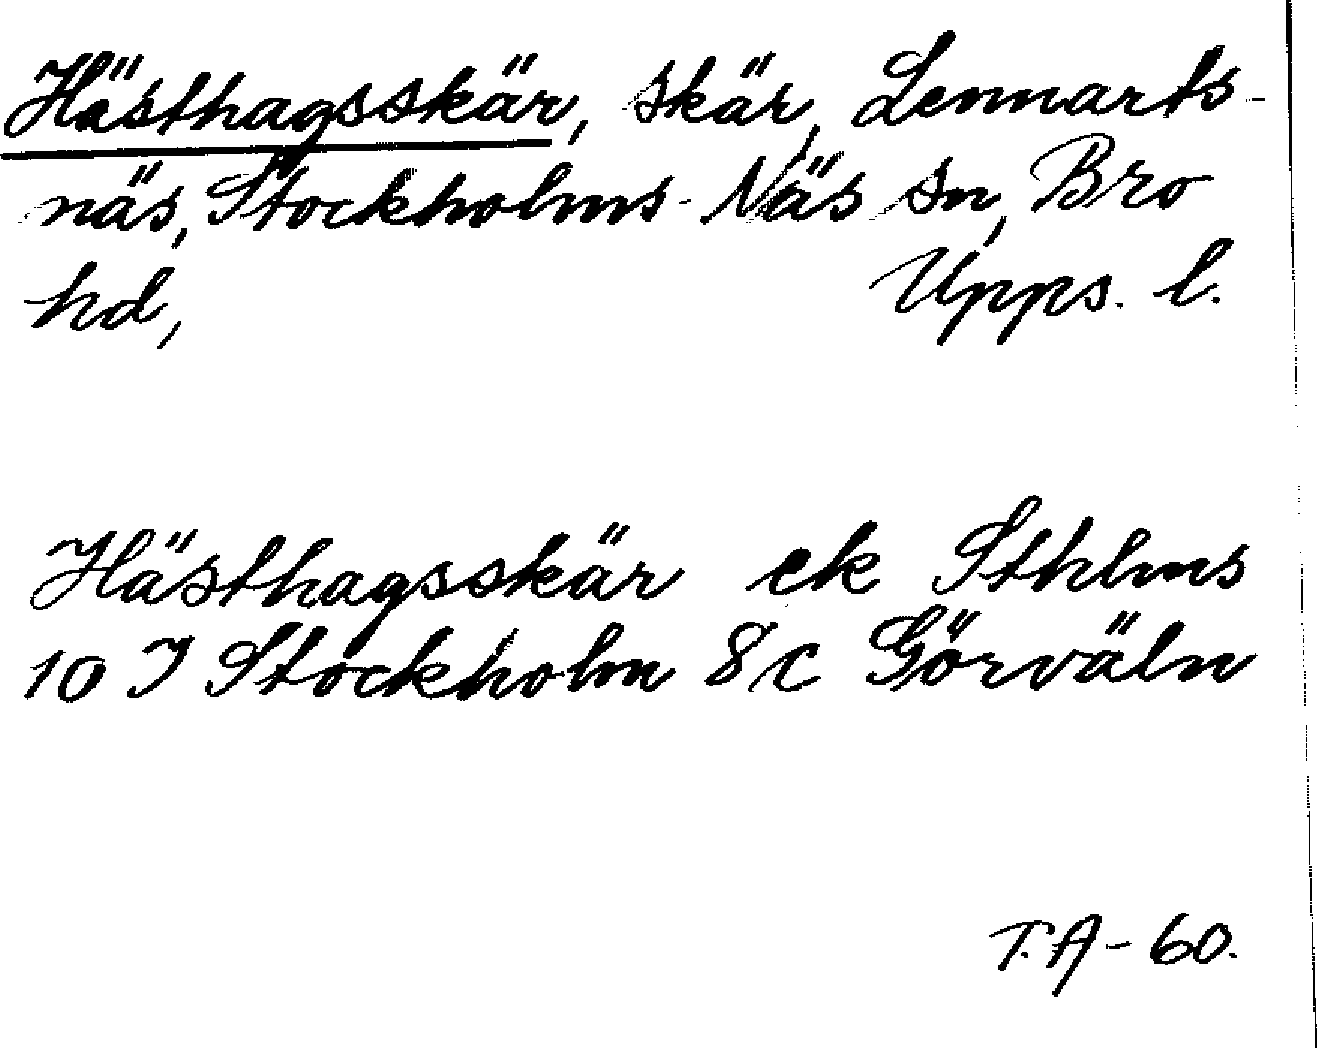 Hästhagsskär, skär, Lennarts-
näs, Stockholms-Näs sn, Bro
hd, Upps. l.
Hästhagsskär ek Sthlms
10 I Stockholm 8c Görväln
T.A-60.